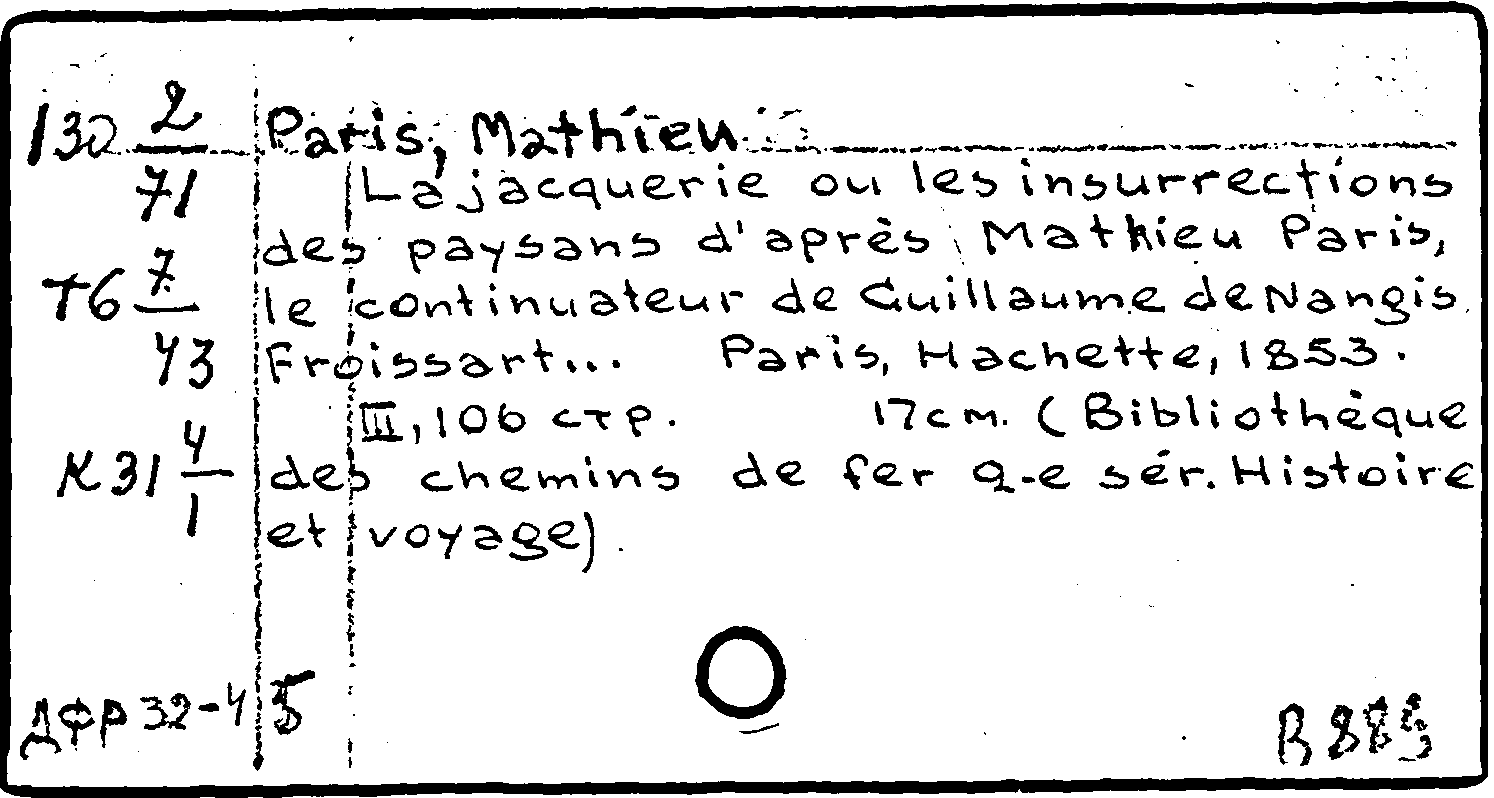 130 2/71
Paris, Mathieu
La jacquerie ou les insurrections
des paysans d'après Mathieu Paris,
T6 7/43
le continuateur de Guillaume de Nangis,
Froissart... Paris, Hachette, 1853.
III, 106 стр. 17cm. (Bibliothèque
K31 4/1
des chemins de fer 2-e sér. Histoire
et voyage)
ДФР 32-4 Б
B 885